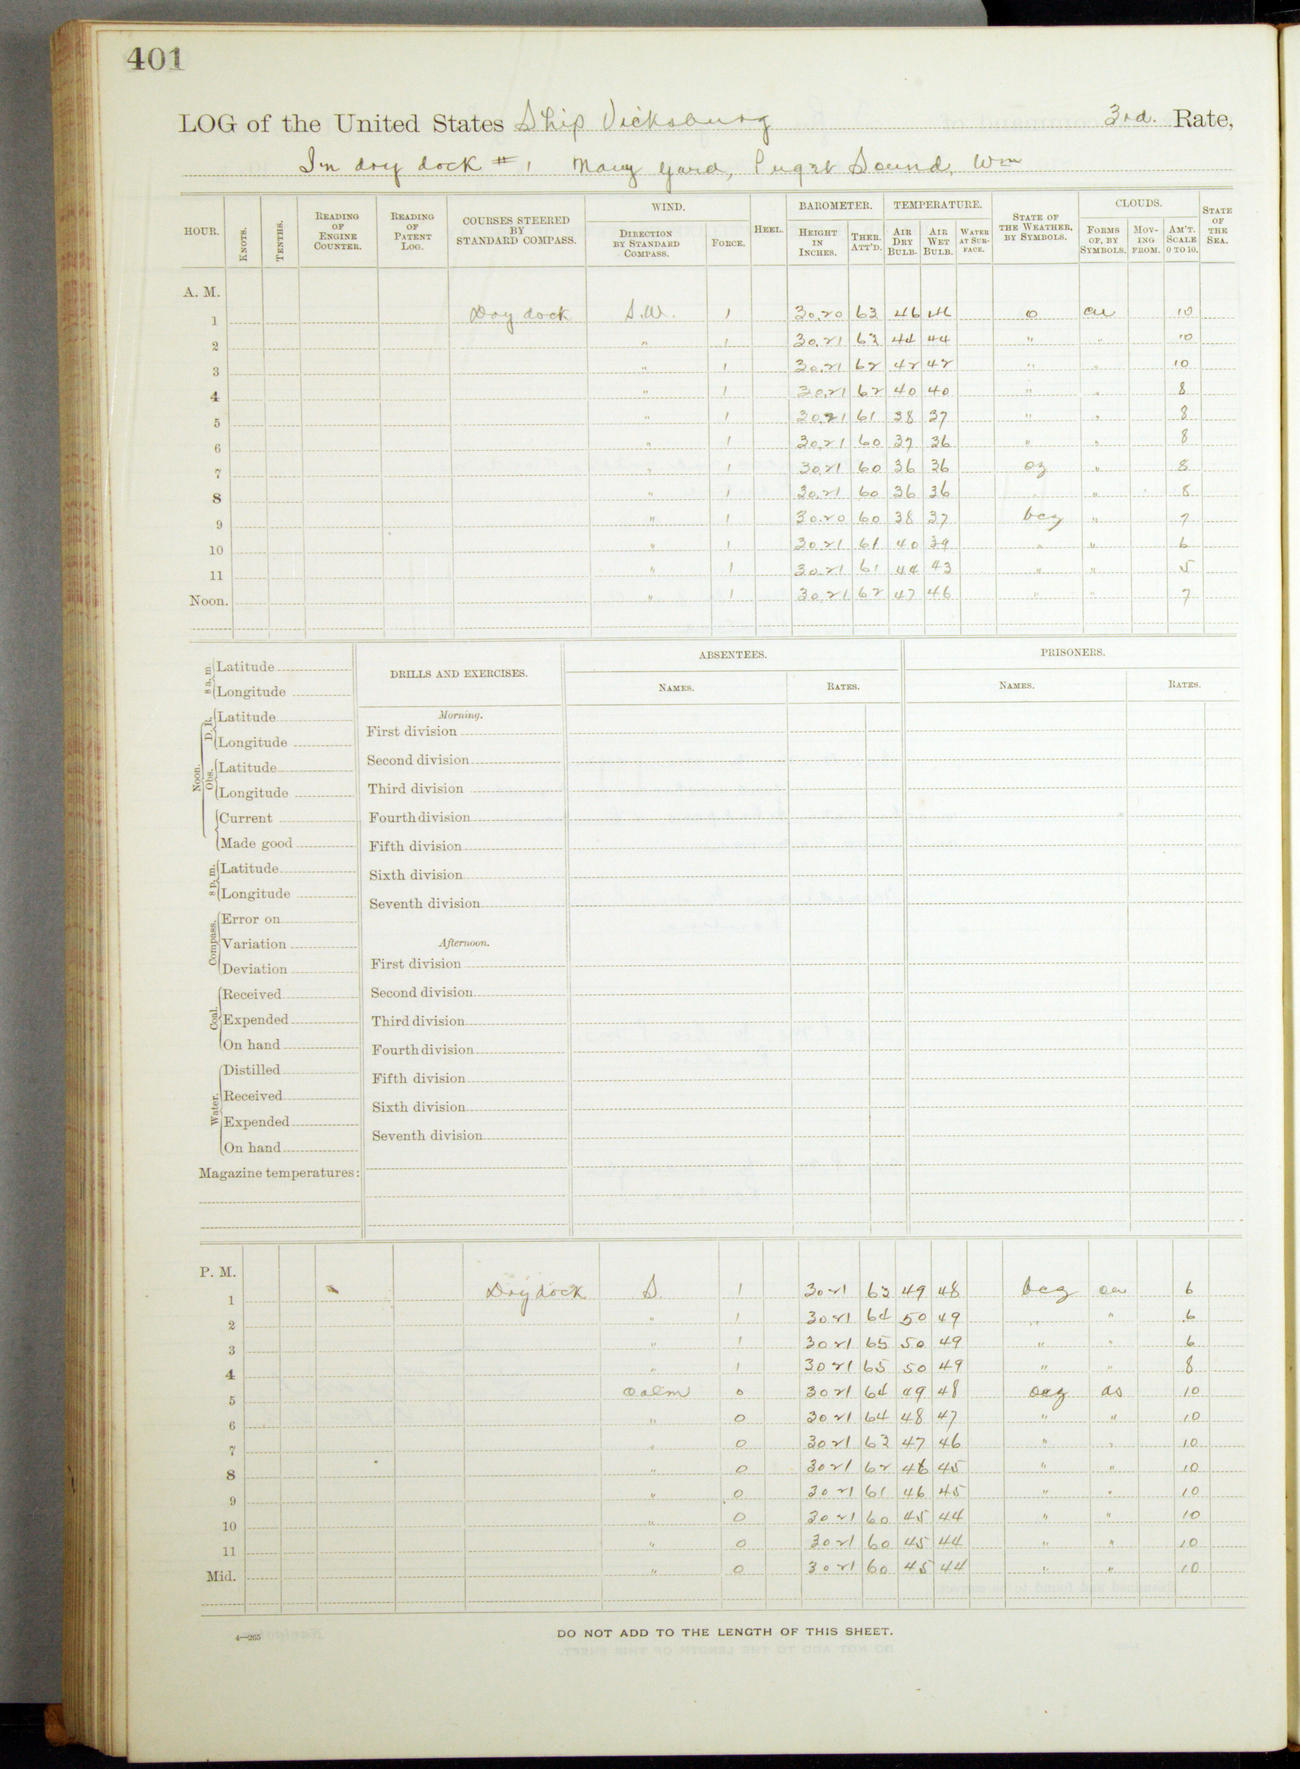 401
LOG of the United States Ship Vicksburg 3rd. Rate,
In dry dock # 1 Navy Yard, Puget Sound, Wn
HOUR. KNOTS. TENTHS. READING OF ENGINE COUNTER. READING OF PATENT LOG. COURSES STEERED BY STANDARD COMPASS. WIND. DIRECTION BY STANDARD COMPASS. FORCE. HEEL. BAROMETER. HEIGHT IN INCHES. THER. ATT'D. TEMPERATURE. AIR DRY BULB. AIR WET BULB. WATER AT SURFACE. STATE OF THE WEATHER, BY SYMBOLS. CLOUDS. FORMS OF, BY SYMBOLS. MOVING FROM. AM'T. SCALE 0 TO 10. STATE OF THE SEA.
A. M.
1 Dry dock S.W. 1 30.20 63 46 46 o cu 10
2 " 1 30.21 63 44 44 " " 10
3 " 1 30.21 62 42 42 " " 10
4 " 1 30.21 62 40 40 " " 8
5 " 1 30.21 61 38 37 " " 8
6 " 1 30.21 60 37 36 " " 8
7 " 1 30.21 60 36 36 oz " 8
8 " 1 30.21 60 36 36 " " 8
9 " 1 30.20 60 38 37 bcz " 7
10 " 1 30.21 61 40 39 " " 6
11 " 1 30.21 61 44 43 " " 5
Noon. " 1 30.21 62 47 46 " " 7
8 a. m. Latitude
Longitude
Noon. D. R. Latitude
Longitude
Obs. Latitude
Longitude
Current
Made good
8 p. m. Latitude
Longitude
Compass. Error on
Variation
Deviation
Coal. Received
Expended
On hand
Water. Distilled
Received
Expended
On hand
Magazine temperatures:
DRILLS AND EXERCISES.
Morning.
First division
Second division
Third division
Fourth division
Fifth division
Sixth division
Seventh division
Afternoon.
First division
Second division
Third division
Fourth division
Fifth division
Sixth division
Seventh division
ABSENTEES.
NAMES. RATES.
PRISONERS.
NAMES. RATES.
P. M.
1 Dry dock S. 1 30 21 63 49 48 bcz cu 6
2 " 1 30 21 64 50 49 " " 6
3 " 1 30 21 65 50 49 " " 6
4 " 1 30 21 65 50 49 " " 8
5 Calm 0 30 21 64 49 48 ocz as 10
6 " 0 30 21 64 48 47 " " 10
7 " 0 30 21 63 47 46 " " 10
8 " 0 30 21 62 46 45 " " 10
9 " 0 30 21 61 46 45 " " 10
10 " 0 30 21 60 45 44 " " 10
11 " 0 30 21 60 45 44 " " 10
Mid. " 0 30 21 60 45 44 " " 10
4—265
DO NOT ADD TO THE LENGTH OF THIS SHEET.